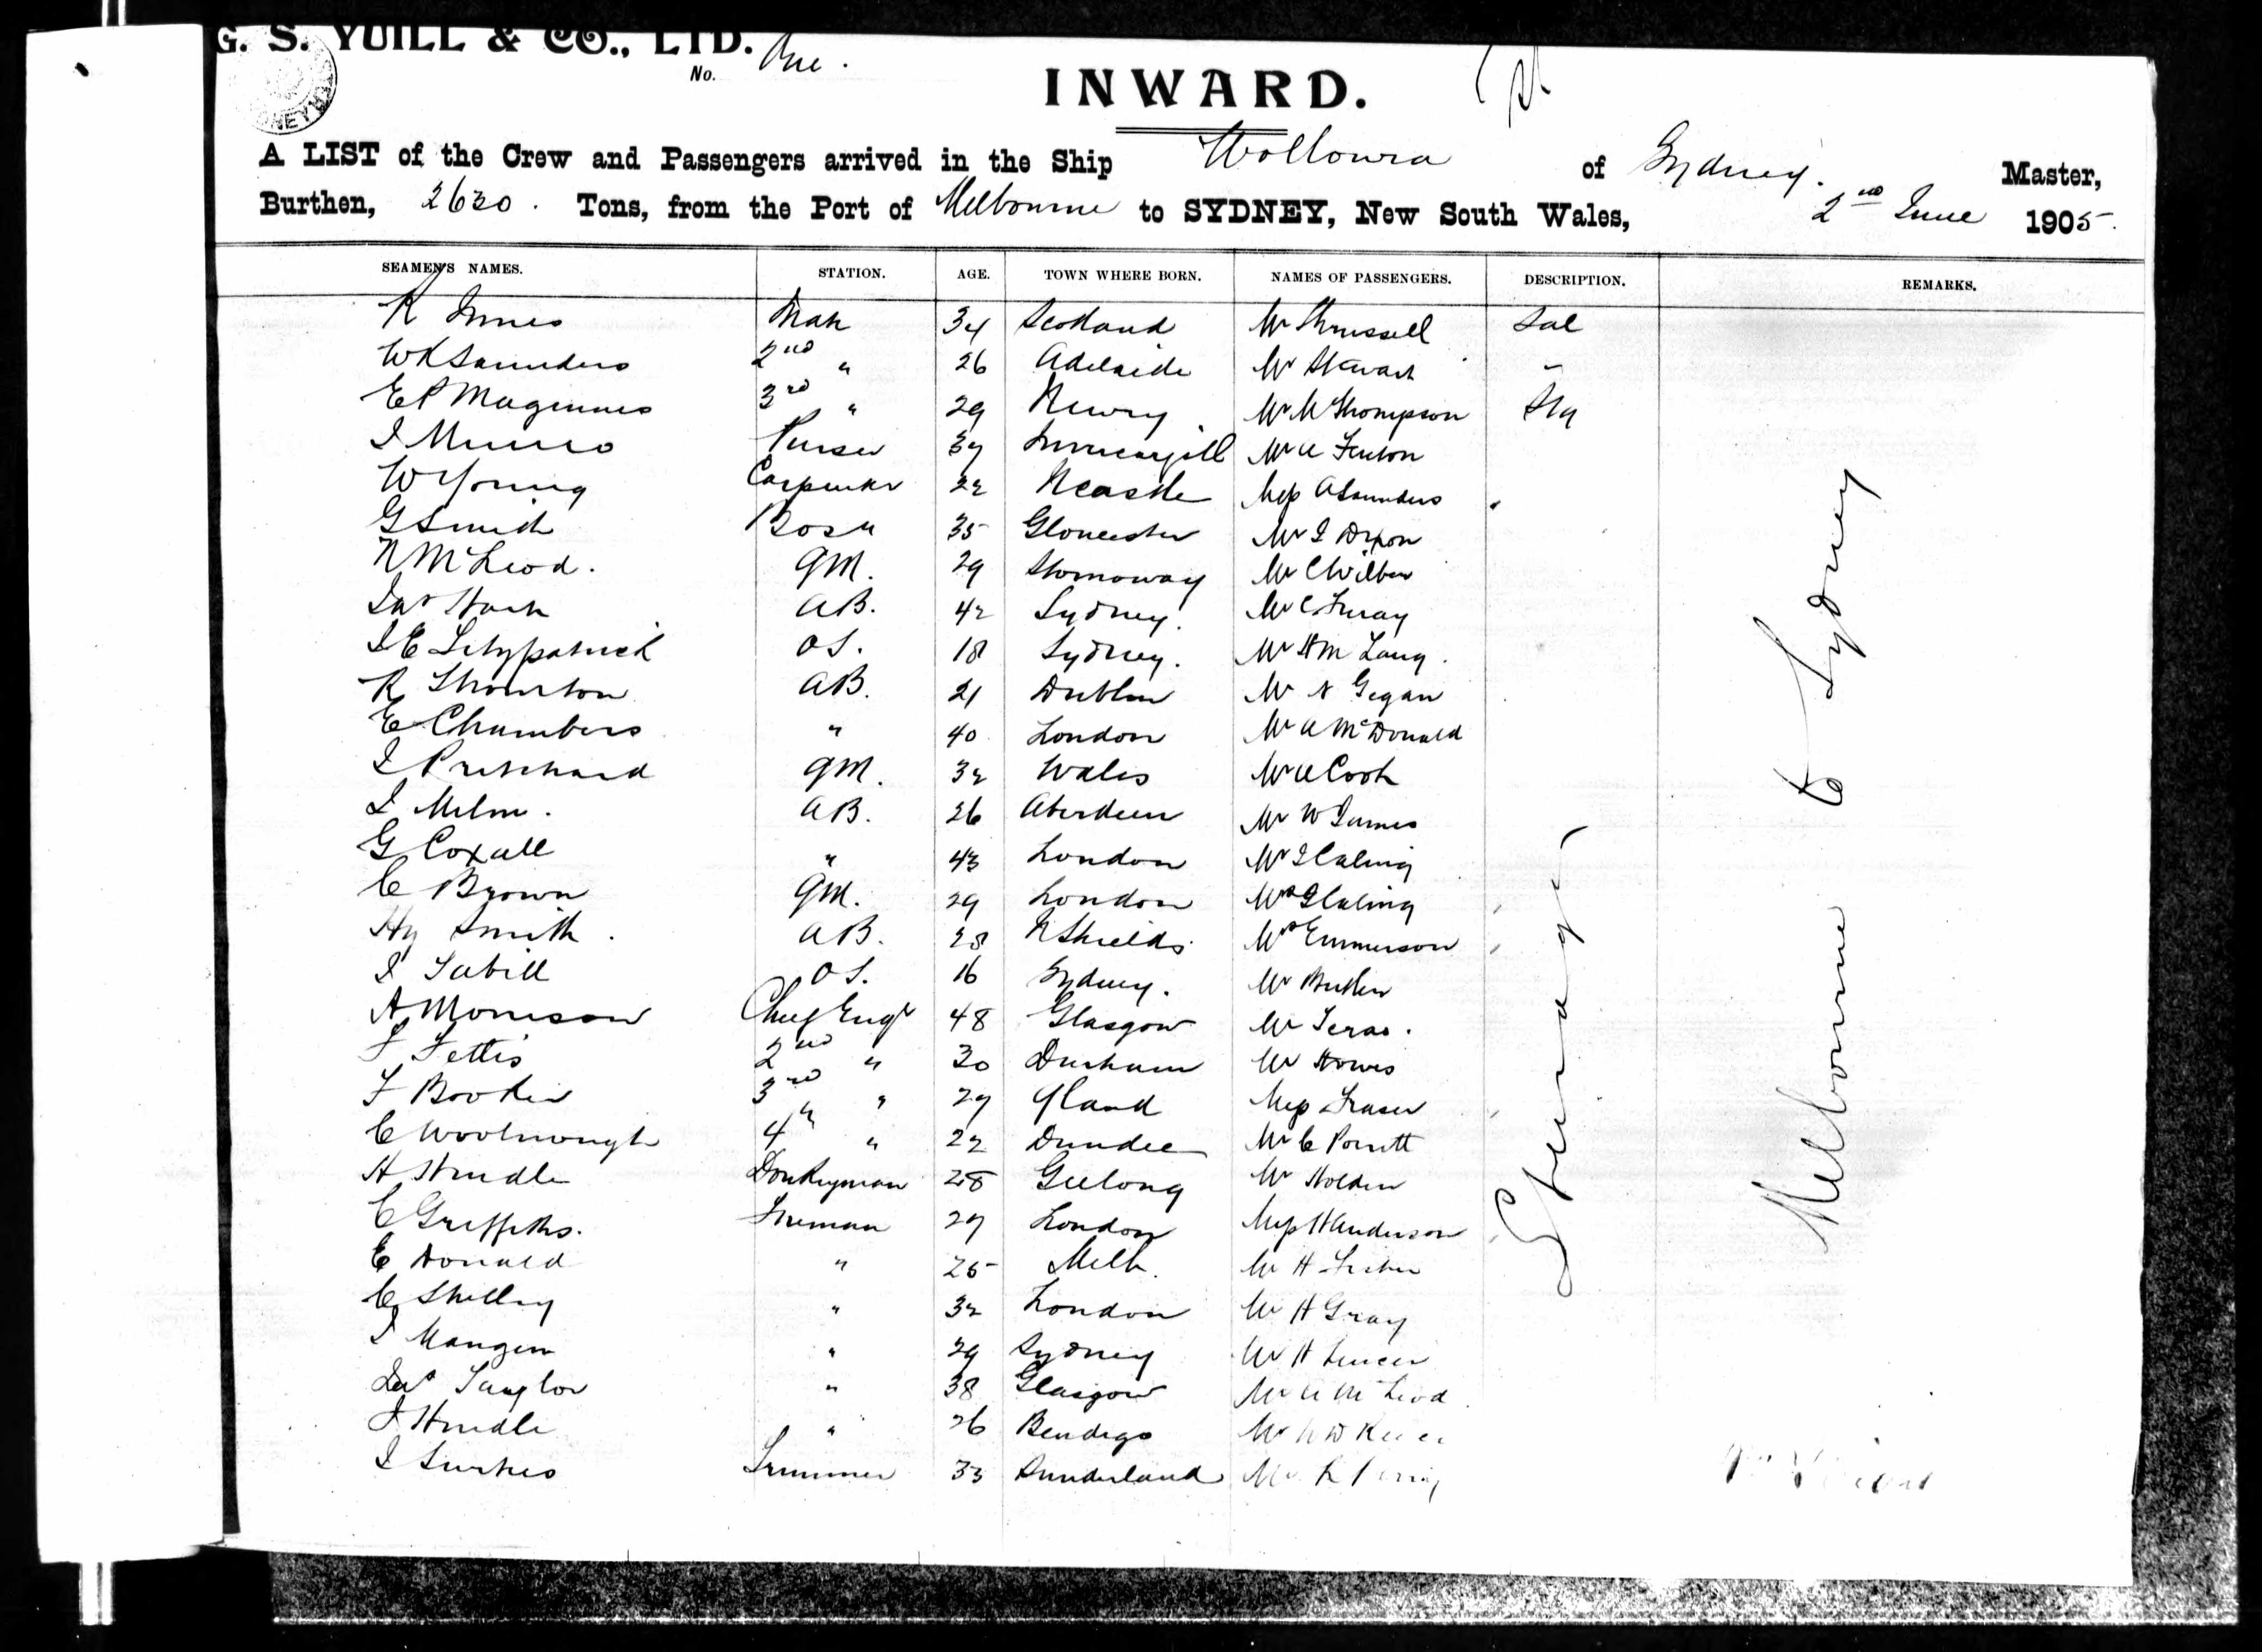 G. S. YUILL & CO., LTD.
No. One.
INWARD.
A LIST of the Crew and Passengers arrived in the Ship Wollowra of Sydney. Master,
Burthen, 2630. Tons, from the Port of Melbourne to SYDNEY, New South Wales, 2nd June 1905.
SEAMEN'S NAMES. STATION. AGE. TOWN WHERE BORN. NAMES OF PASSENGERS. DESCRIPTION. REMARKS.
R Innes Mate 34 Scotland Mr Thrussell Sal
W R Saunders 2nd " 26 Adelaide Mr Stewart "
E P Magennes 3rd " 29 Newry Mr M Thompson Stg
J Munro Purser 37 Invercargill Mr A Fenton
W Young Carpenter 22 Ncastle Miss A Saunders
G Smith Bosn 35 Gloucester Mr J Dixon
N McLeod. QM. 29 Stornoway Mr C Wilber
Jas Hack AB. 42 Sydney. Mr C Furay
J E Fitzpatrick OS. 18 Sydney. Mr H M Lang.
R Thornton AB. 21 Dublin Mr N Gegan
E Chambers " 40 London Mr A McDonald
J Pritchard QM. 32 Wales Mr A Cook
J Milne. AB. 26 Aberdeen Mr W James
G Coxall " 43 London Mr J Ealing
C Brown QM. 29 London Mrs Ealing
Hy Smith. AB. 28 N Shields. Mrs Emmerson
J Tabill OS. 16 Sydney. Mr Butler
A Morrison Chief Engr 48 Glasgow Mr Teras.
F Fettis 2nd " 30 Durham Mr Howes
F Booker 3rd " 27 Qland Miss Fraser
C Woolnough 4th " 22 Dundee Mr C Porritt
H Hindle Donkeyman 28 Geelong Mr Holden
C Griffiths. Fireman 27 London Miss Henderson
E Donald " 25 Melb. Mr H Fisher
C Shelley " 32 London Mr H Gray
J Mangin " 29 Sydney Mr H Spencer
Jas Taylor " 38 Glasgow Mr A McLeod.
J Hindle " 26 Bendigo Mr
J Surtees Trimmer 33 Sunderland Mr
Steerage
Melbourne to Sydney